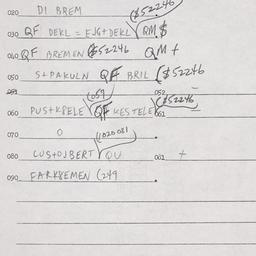 020 DI BREM ($52246
030 QF DEKL = EJG+DEKL QM.$
040 QF BREMEN $52246 QM +
050 S+PAKULN QF BRIL ($52246
051 (059 052 —
060 PUS+KPELE QF KESTELE ($52246 061 —
070 O (1020081
080 CUS+OJBERT QU 081 +
090 FARK8EMEN (249 .